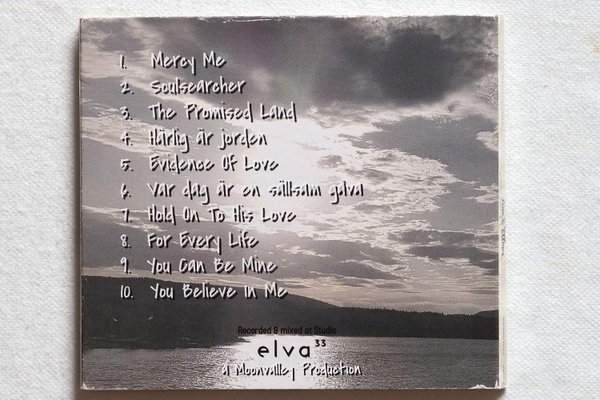 1. Mercy Me
2. Soulsearcher
3. The Promised Land
4. Härlig är jorden
5. Evidence Of Love
6. Var dag är en sällsam gåva
7. Hold On To His Love
8. For Every Life
9. You Can Be Mine
10. You Believe In Me
Recorded & mixed at Studio
elva33
a Moonvalley Production